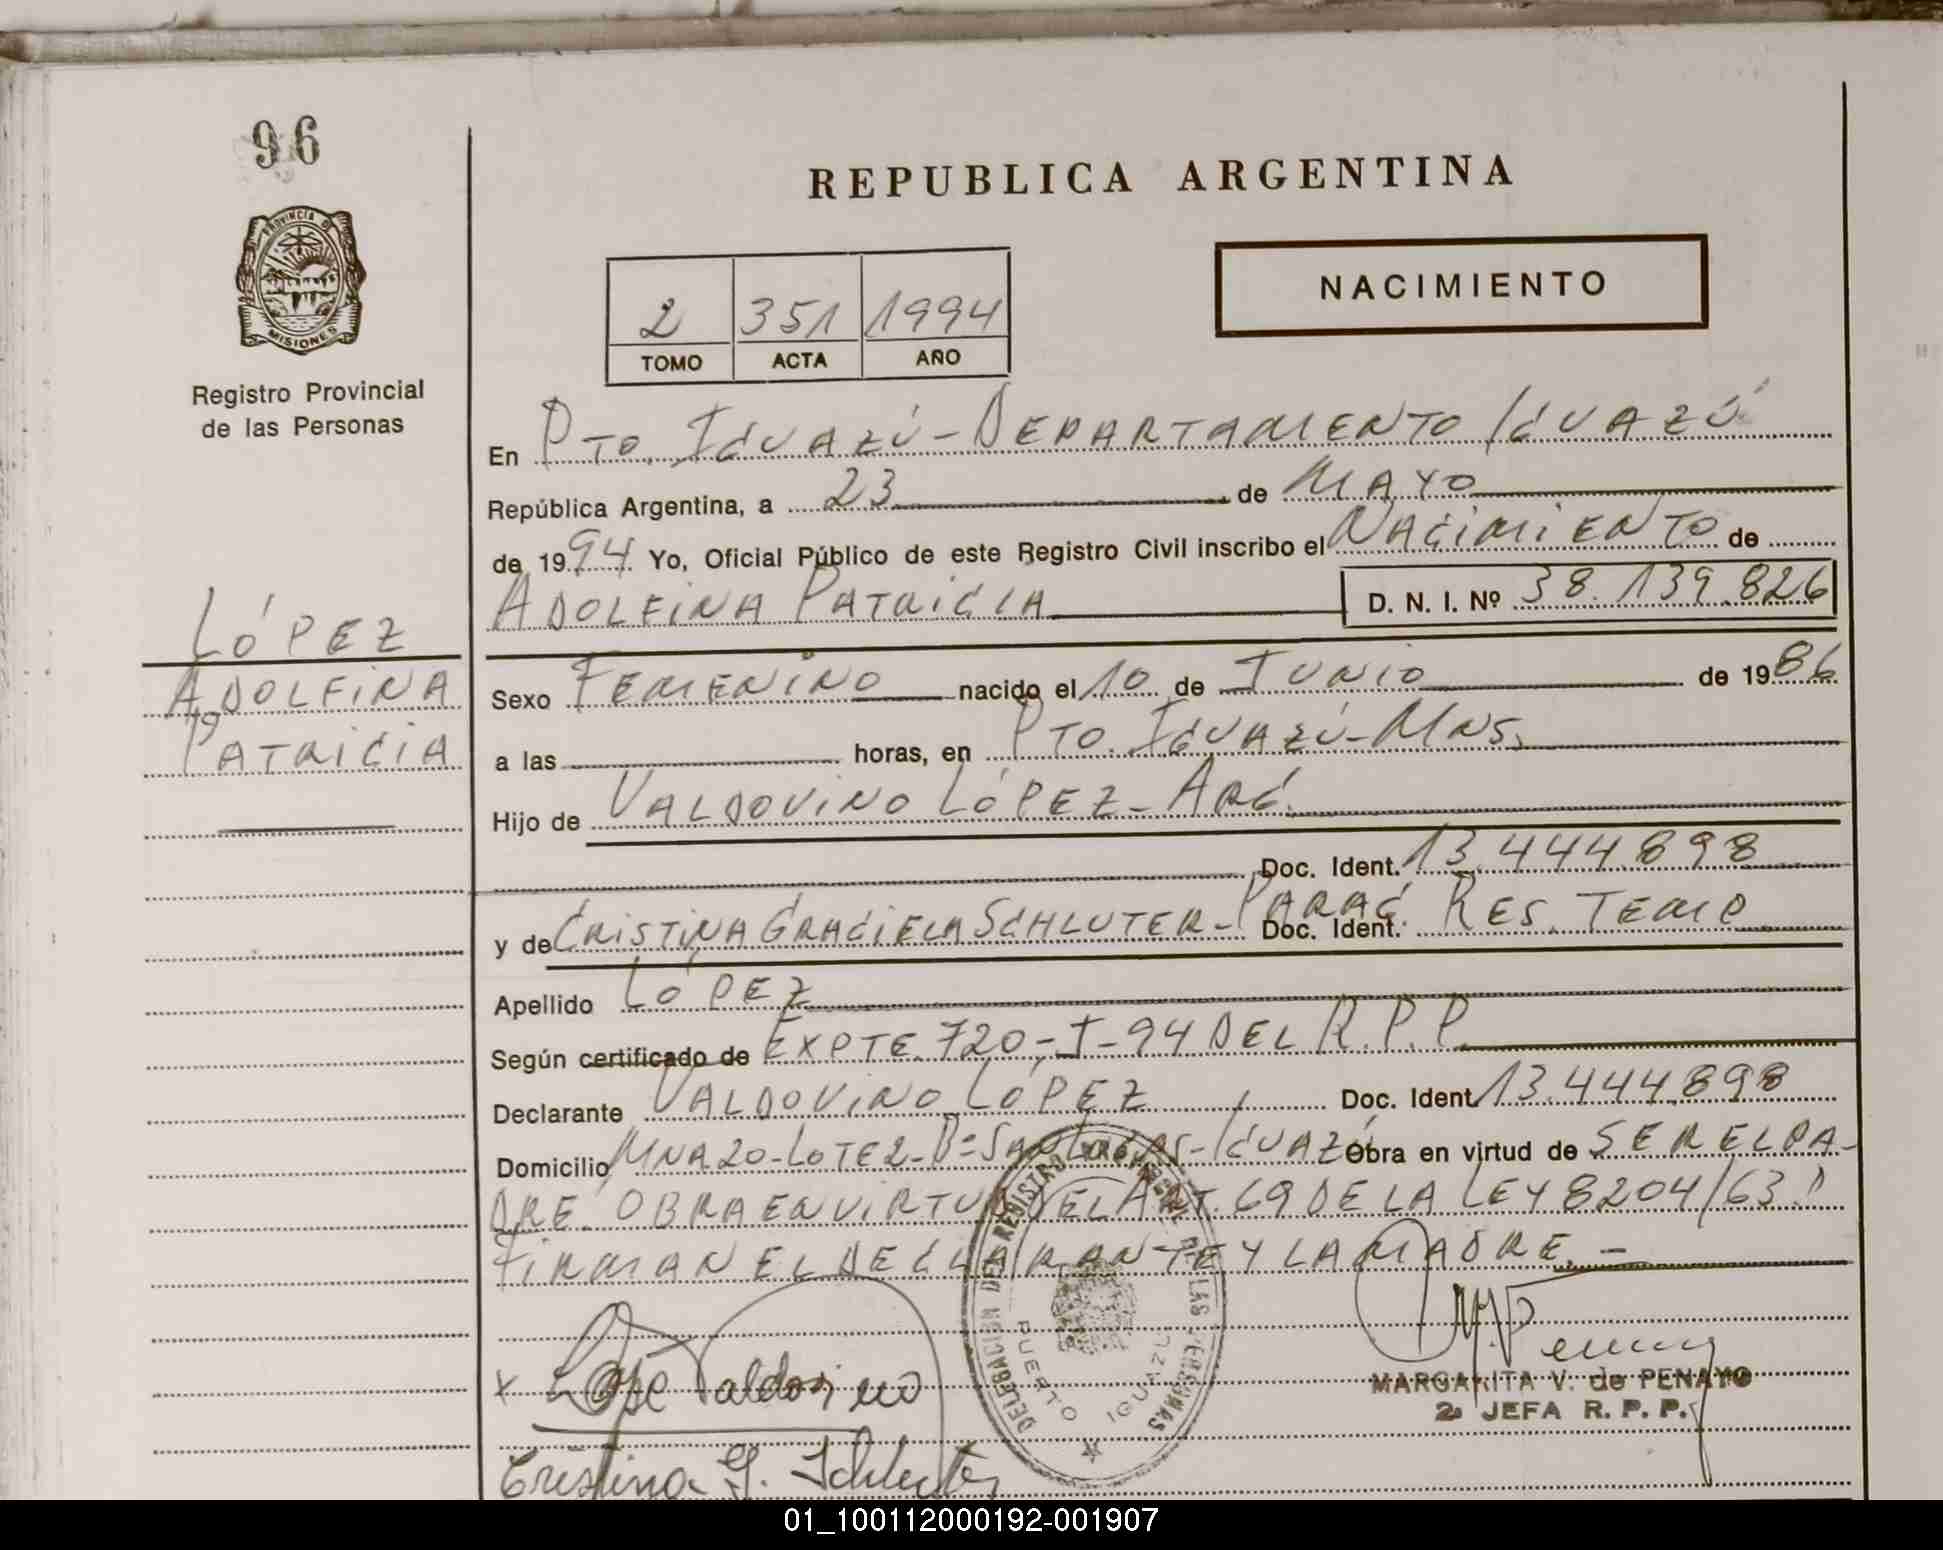 96
PROVINCIA DE
MISIONES
Registro Provincial
de las Personas
REPUBLICA ARGENTINA
NACIMIENTO
2 351 1994
TOMO ACTA AÑO
En PTO. IGUAZÚ - DEPARTAMENTO IGUAZÚ
República Argentina, a 23 de MAYO
de 1994 Yo, Oficial Público de este Registro Civil inscribo el NACIMIENTO de
ADOLFINA PATRICIA D. N. I. Nº 38.139.826
LÓPEZ
ADOLFINA
PATRICIA
Sexo FEMENINO nacido el 10 de JUNIO de 1986
a las horas, en PTO. IGUAZÚ - MNS.
Hijo de VALDOVINO LÓPEZ - ARG.
Doc. Ident. 13.444.898
y de CRISTINA GRACIELA SCHLUTER - PARAG. Doc. Ident. RES. TEMP
Apellido LÓPEZ
Según certificado de EXPTE. 720-I-94 DEL R.P.P.
Declarante VALDOVINO LÓPEZ Doc. Ident. 13.444.898
Domicilio MNA 20 - LOTE 2 - Bº SAN LUCAS - IGUAZÚ Obra en virtud de SER EL PA-
DRE. OBRA EN VIRTUD DEL ART. 69 DE LA LEY 8204/63.
FIRMAN EL DECLARANTE Y LA MADRE. -
DELEGACION DEL REGISTRO PROVINCIAL DE LAS PERSONAS
PUERTO IGUAZU
x Lope Valdovino
MARGARITA V. de PENAYO
2a JEFA R. P. P.
Cristina G. Schluter
01_100112000192-001907